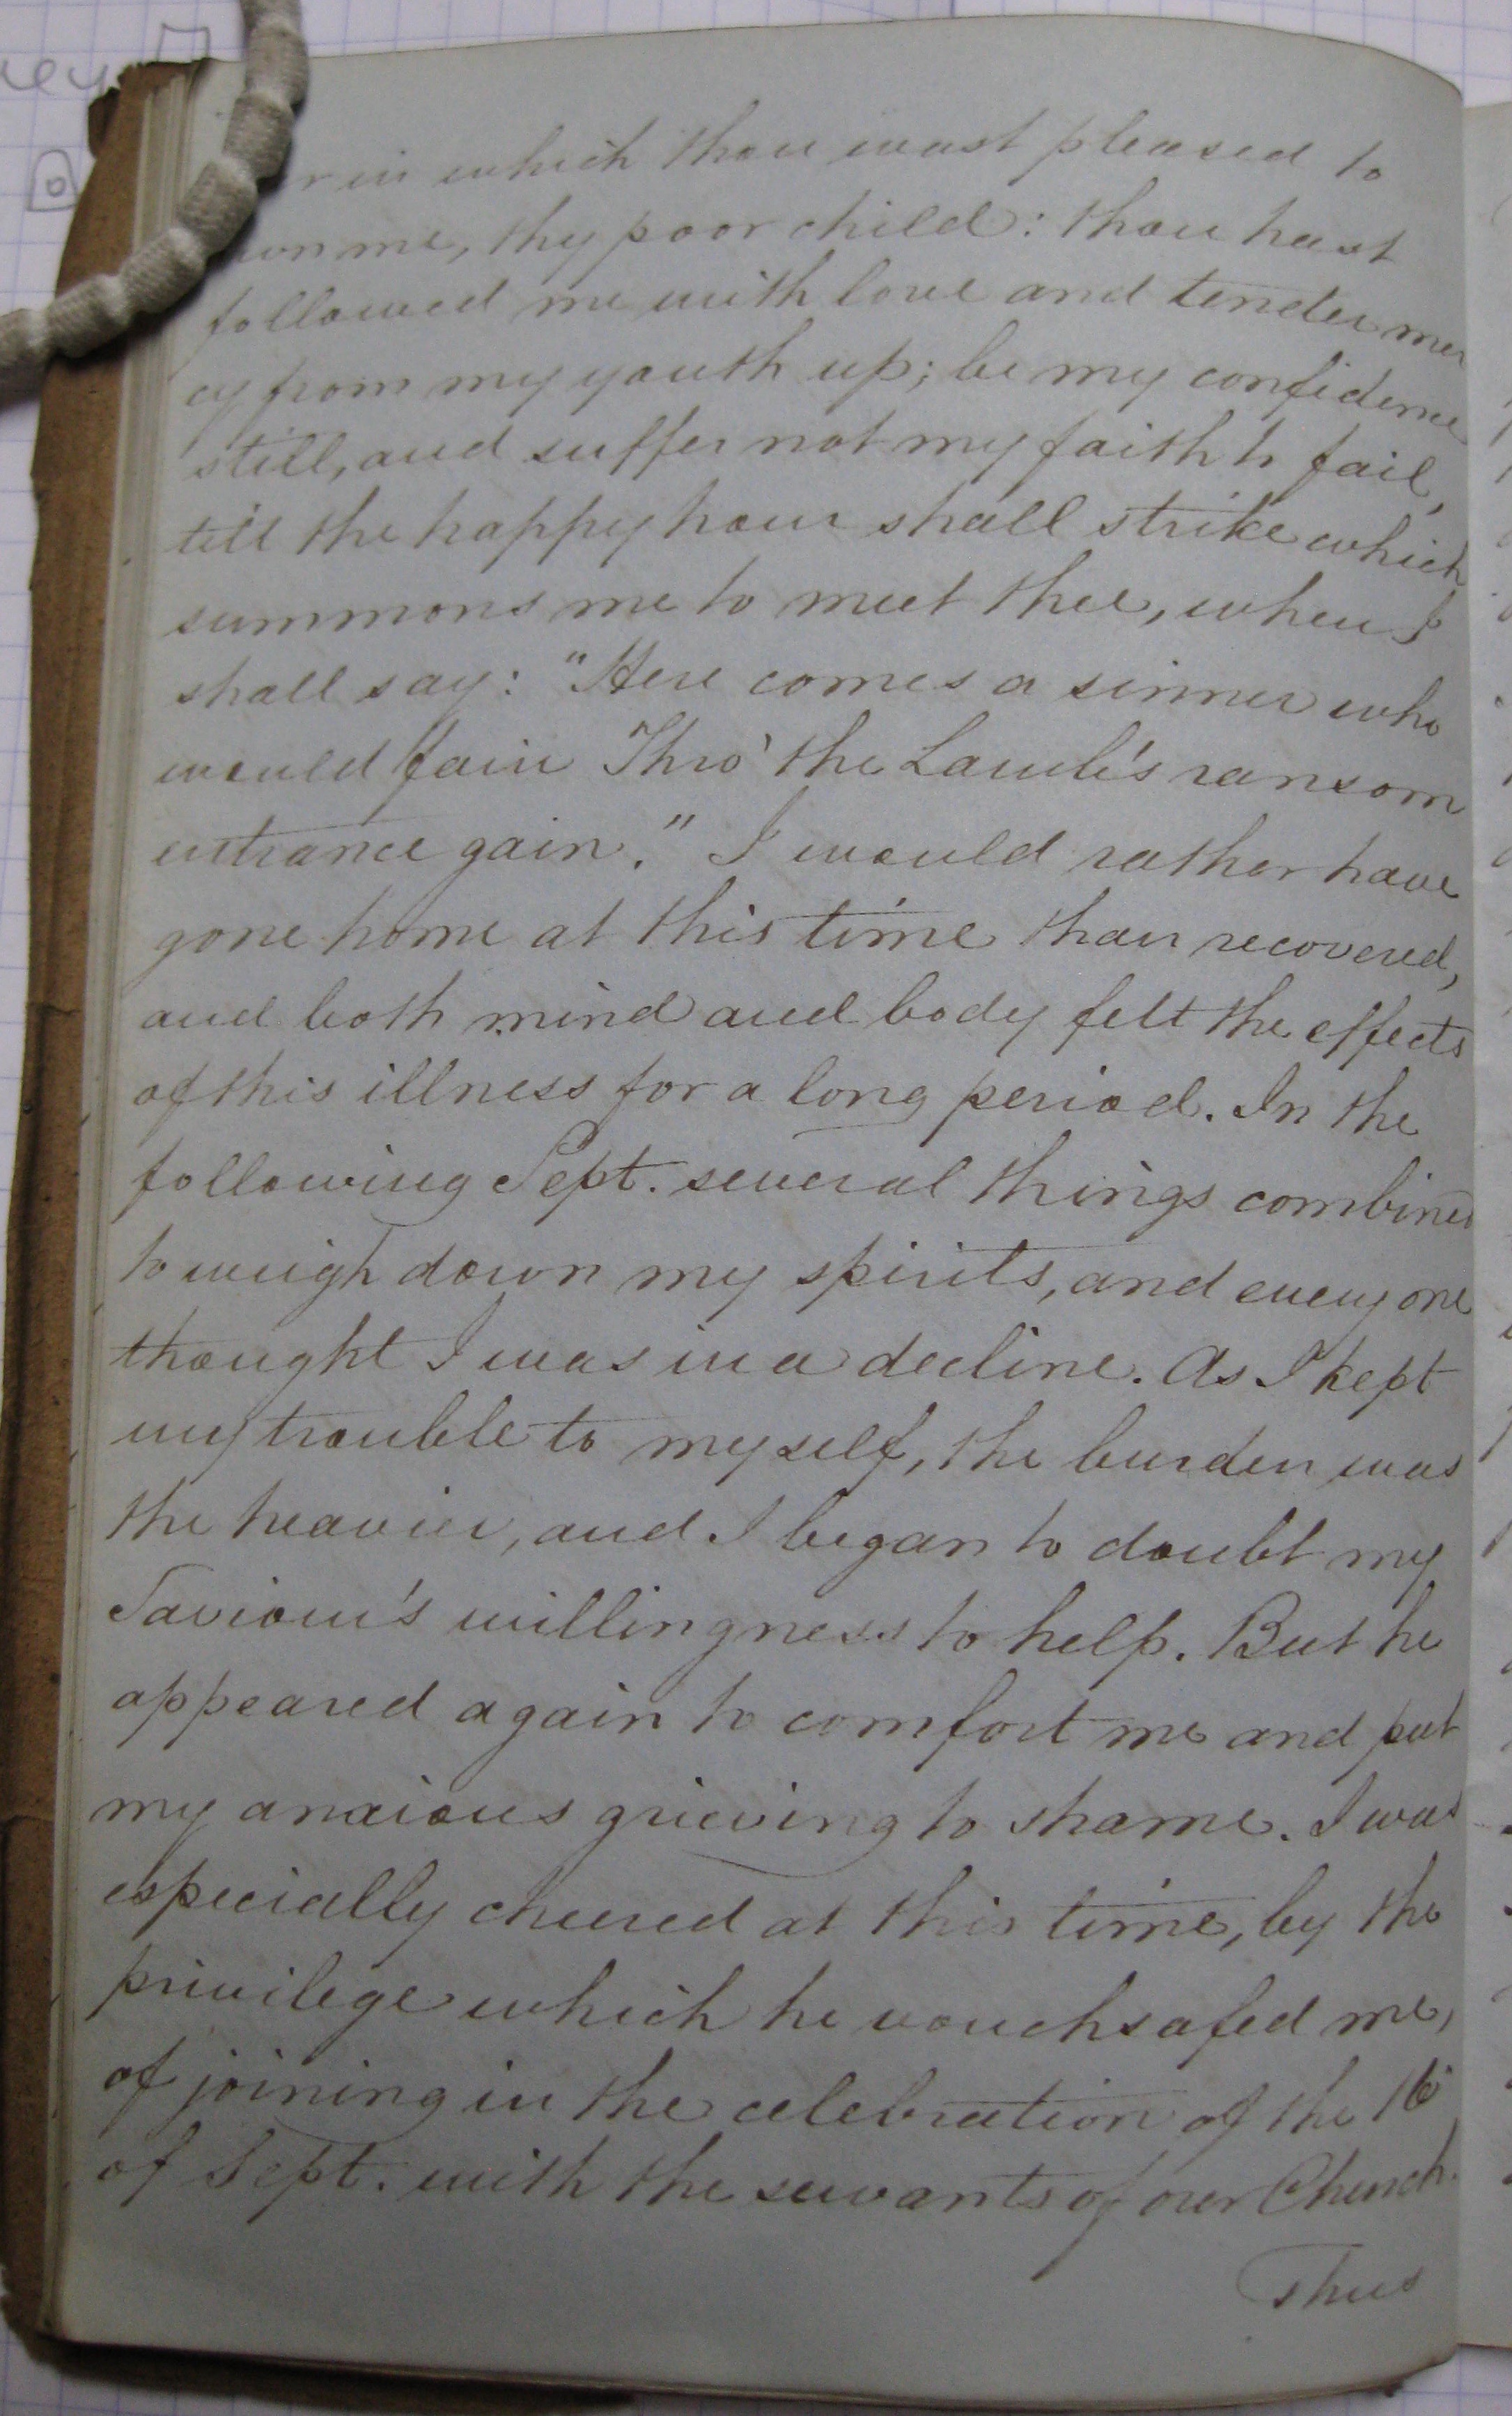 in which thou wast pleased to
me, thy poor child: thou hast
followed me with love and tender mer
cy from my youth up; be my confidence
still, and suffer not my faith to fail,
till the happy hour shall strike which
summons me to meet thee, when I
shall say: "Here comes a sinner who
would fain Thro' the Lamb's ransom
entrance gain." I would rather have
gone home at this time than recovered,
and both mind and body felt the effects
of this illness for a long period. In the
following Sept. several things combined
to weigh down my spirits, and every one
thought I was in a decline. As I kept
my trouble to myself, the burden was
the heavier, and I began to doubt my
Saviour's willingness to help. But he
appeared again to comfort me and put
my anxious grieving to shame. I was
especially cheered at this time, by the
privilege which he vouchsafed me,
of joining in the celebration of the 16
of Sept. with the servants of our Church.
Thus